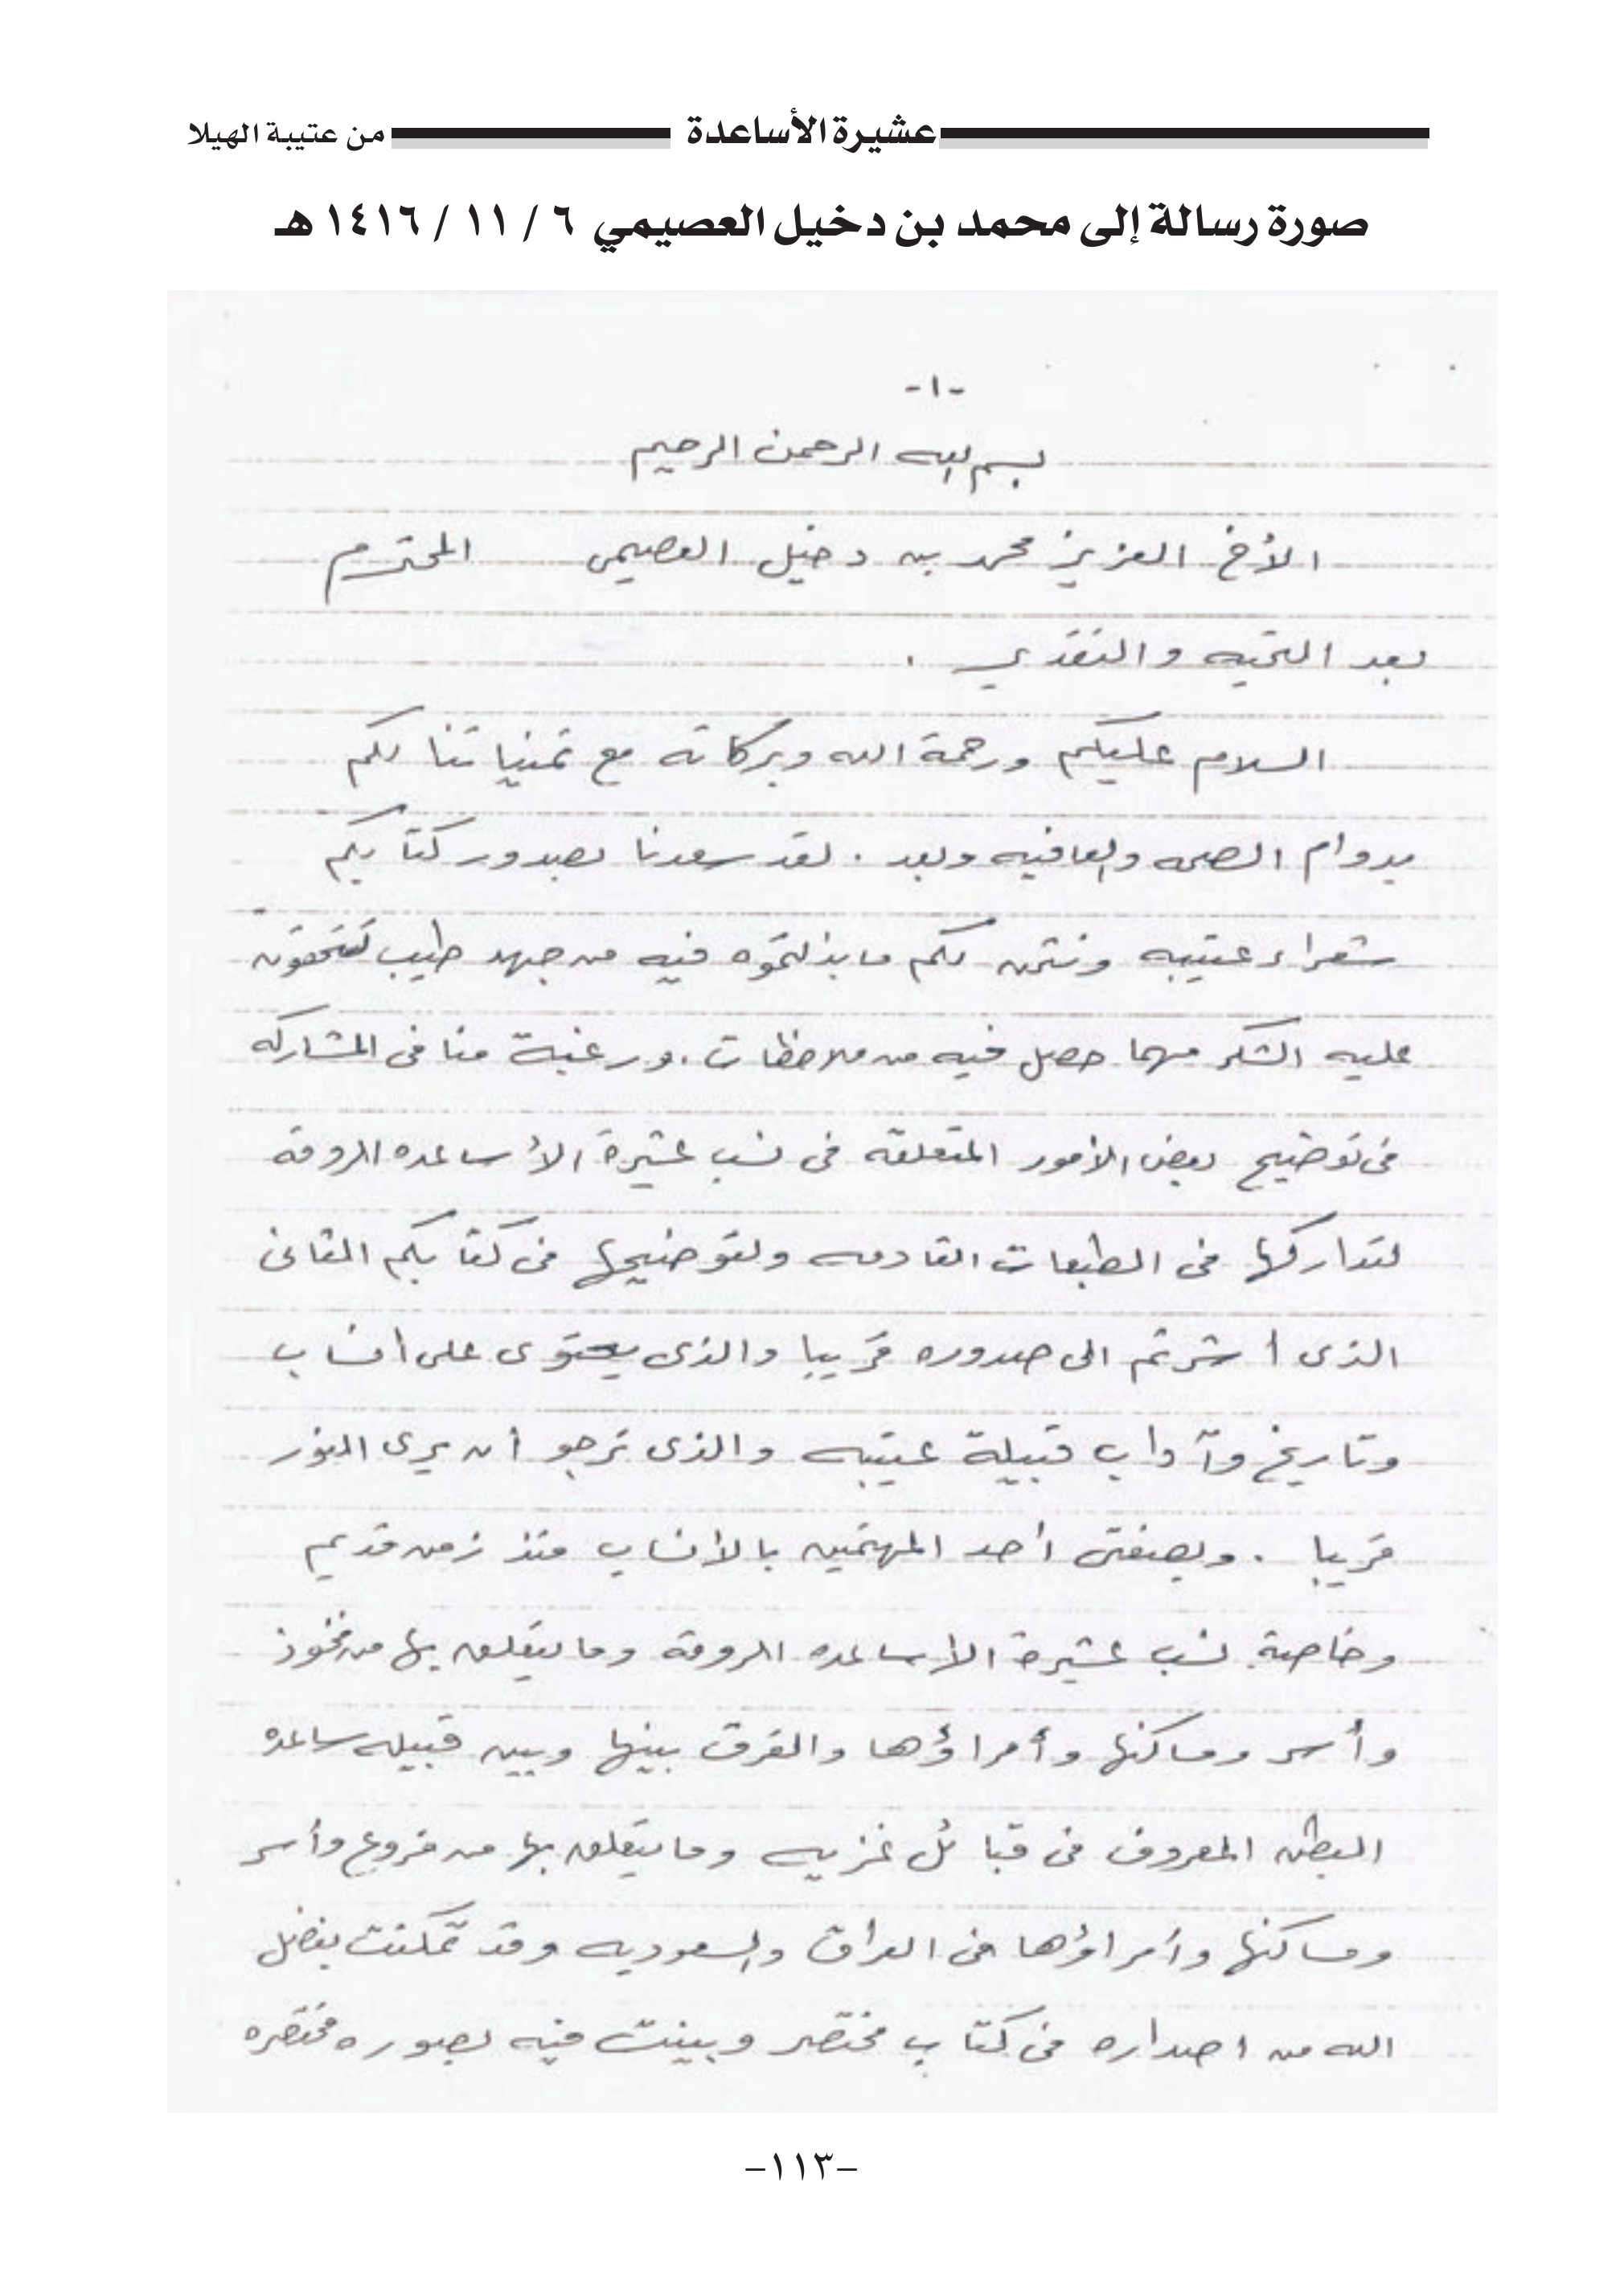 عشيرة الأساعدة من عتيبة الهيلا
صورة رسالة إلى محمد بن دخيل العصيمي ٦ / ١١ / ١٤١٦ هـ
-١-
بسم الله الرحمن الرحيم
الأخ العزيز محمد بن دخيل العصيمى المحترم
بعد التحيه والتقدير .
السلام عليكم ورحمة الله وبركاته مع تمنياتنا لكم
بدوام الصحه والعافيه وبعد . لقد سعدنا بصدور كتابكم
شعراء عتيبه ونثمن لكم ما بذلتموه فيه من جهد طيب تستحقون
عليه الشكر مهما حصل فيه من ملاحظات . ورغبة منا فى المشاركه
فى توضيح بعض الأمور المتعلقه فى نسب عشيرة الأساعده الروقه
لتداركها فى الطبعات القادمه ولتوضيحها فى كتابكم الثانى
الذى أشرتم الى صدوره قريبا والذى يحتوى على انساب
وتاريخ وآداب قبيلة عتيبه والذى نرجو أن يرى النور
قريبا . وبصفتى أحد المهتمين بالأنساب منذ زمن قديم
وخاصة نسب عشيرة الأساعده الروقه وما يتعلق بها من فخوذ
وأسر ومساكنها وأمراؤها والفرق بينها وبين قبيله ساعده
البطن المعروف فى قبائل غزيه وما يتعلق بها من فروع وأسر
ومساكنها وأمراؤها فى العراق والسعوديه وقد تمكنت بفضل
الله من اصداره فى كتاب مختصر وبينت فيه بصوره مختصره
-١١٣-